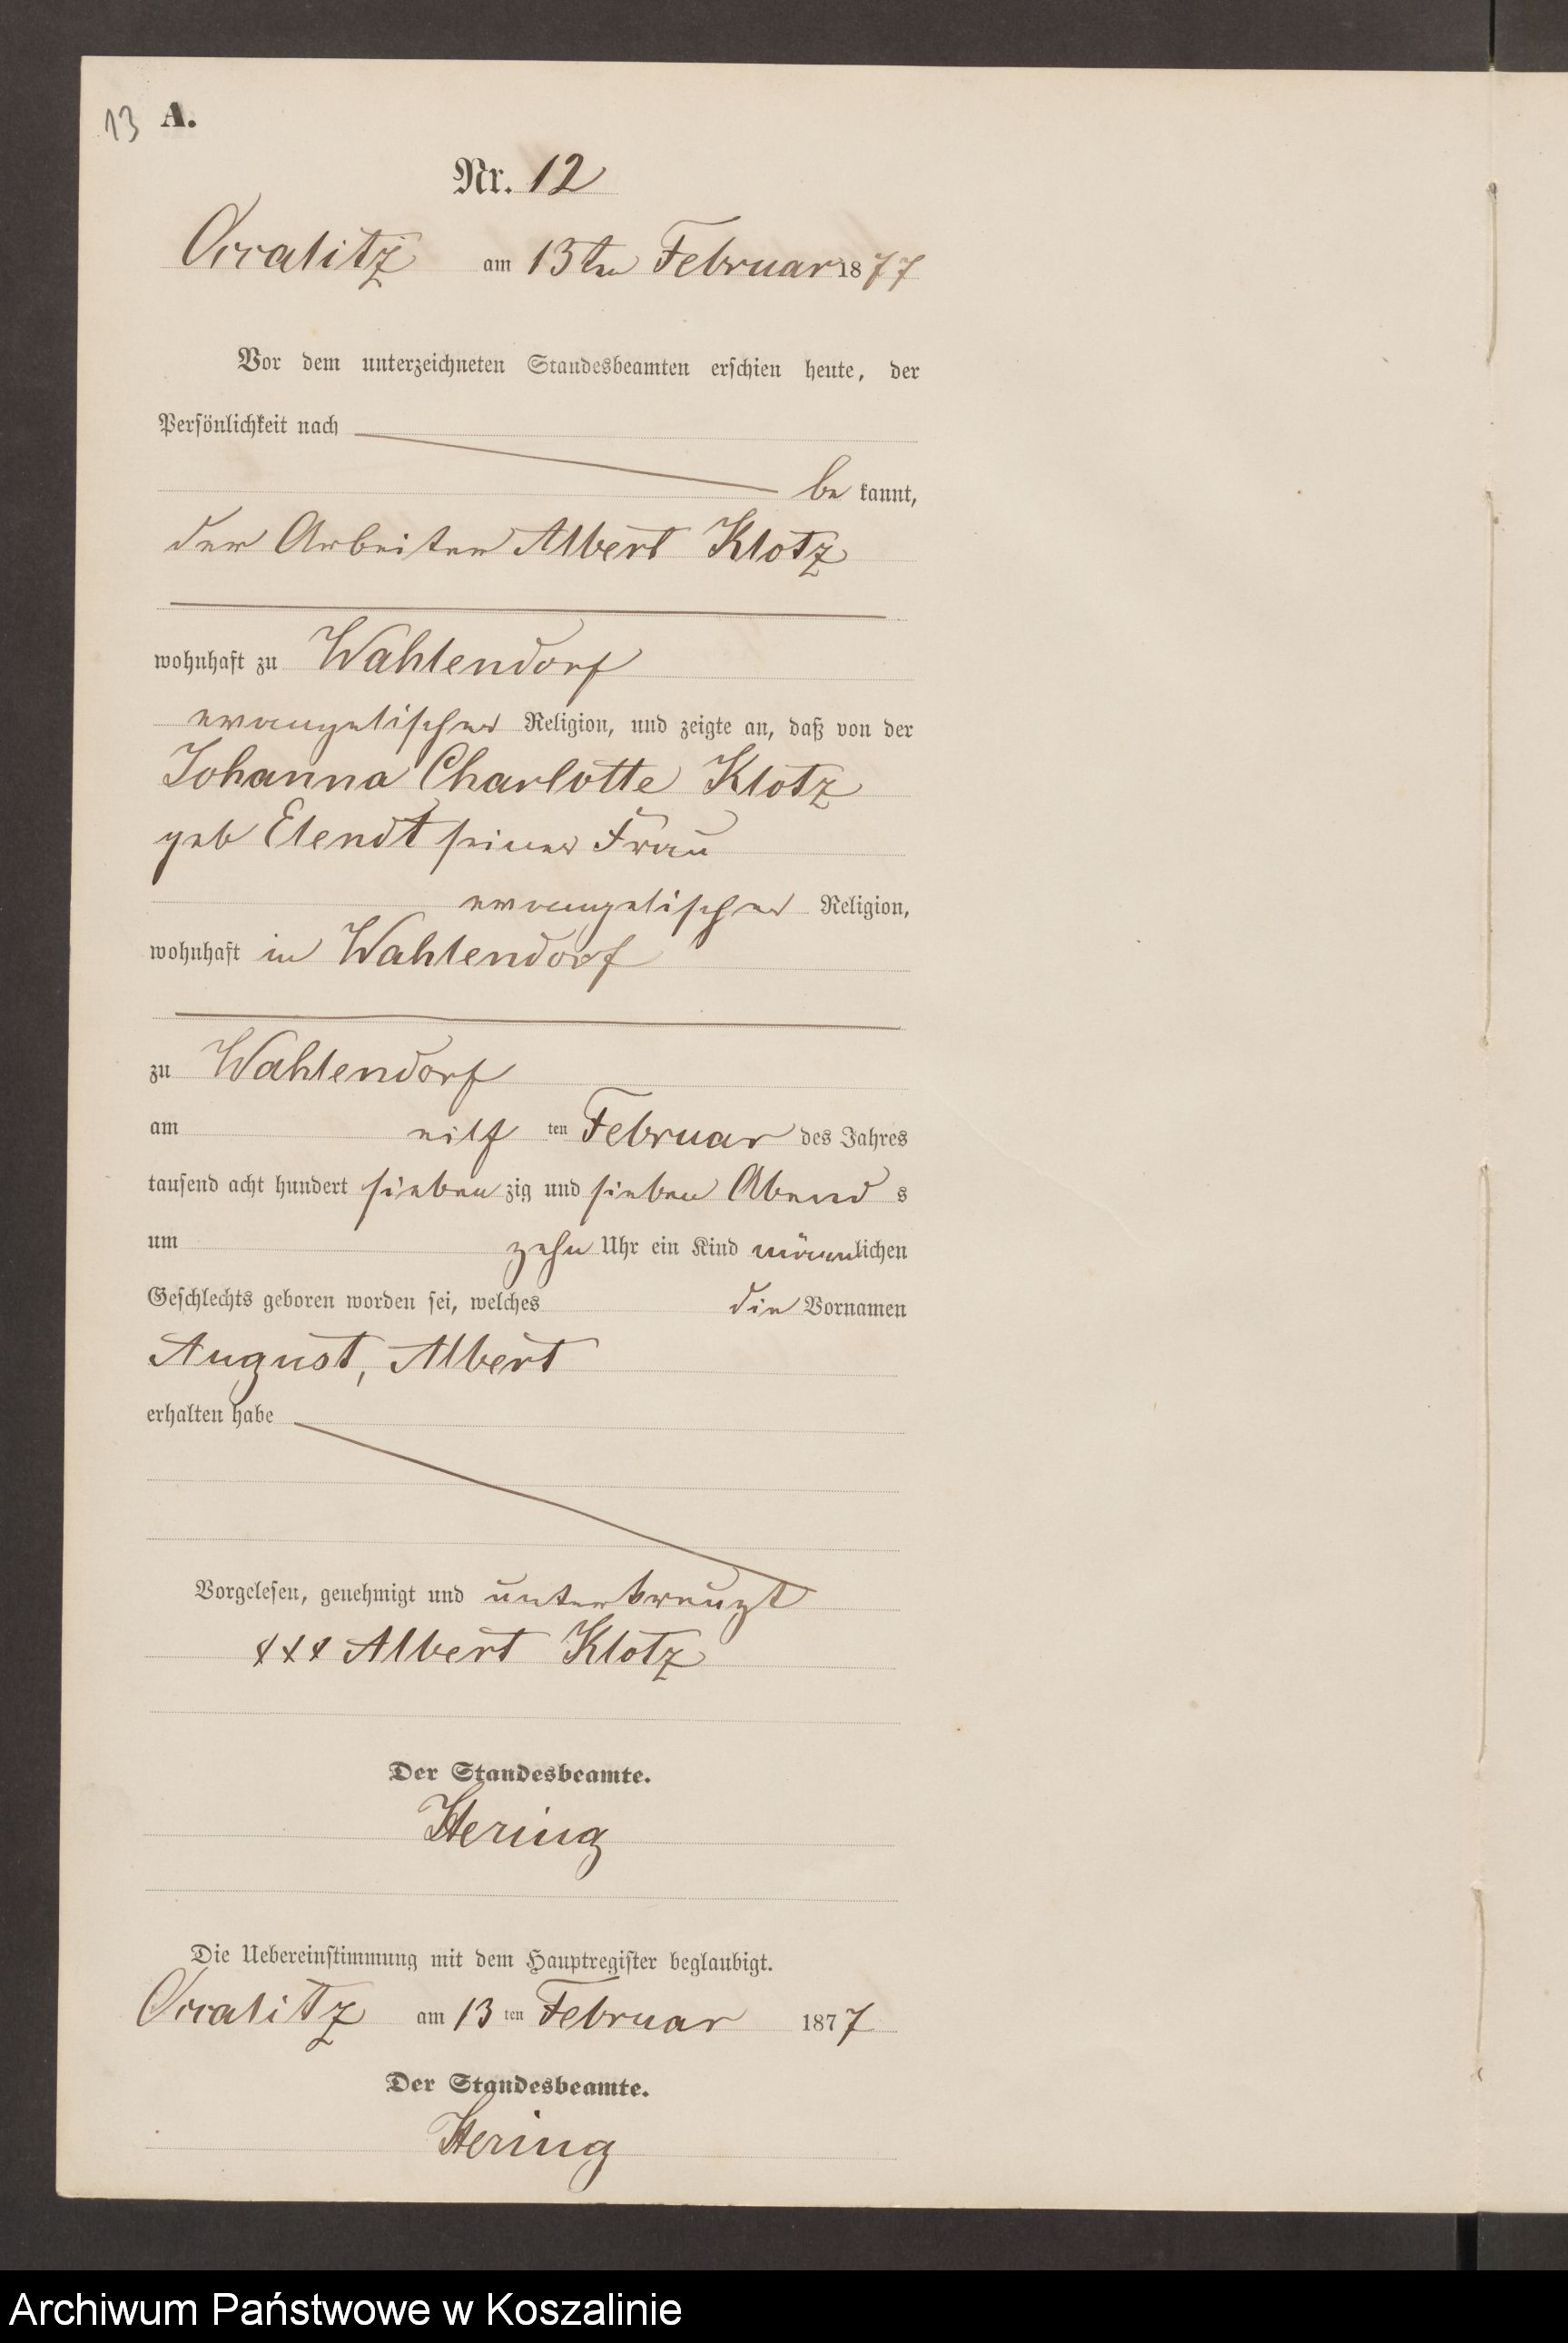 13 A.
Nr. 12
am 13ten Februar 1877
Vor dem unterzeichneten Standesbeamten erschien heute, der
Persönlichkeit nach
be kannt,
der Arbeiter Albert Klotz
wohnhaft zu Wahlendorf
evangelischer Religion, und zeigte an, daß von der
Johanna Charlotte Klotz
geb Elendt seiner Frau
evangelischer Religion,
wohnhaft in Wahlendorf
zu Wahlendorf
am eilf ten Februar des Jahres
tausend acht hundert sieben zig und sieben Abend s
um zehn Uhr ein Kind männlichen
Geschlechts geboren worden sei, welches die Vornamen
August, Albert
erhalten habe
Vorgelesen, genehmigt und unterkreuzt
xxx Albert Klotz
Der Standesbeamte.
Hering
Die Uebereinstimmung mit dem Hauptregister beglaubigt.
am 13 ten Februar 1877
Der Standesbeamte.
Hering
Archiwum Państwowe w Koszalinie